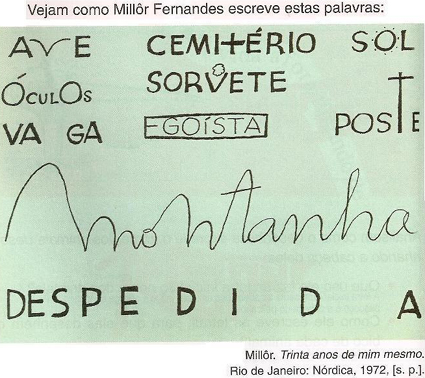 Vejam como Millôr Fernandes escreve estas palavras:
AVE CEMITÉRIO SOL
ÓCULOS SORVETE
VA GA EGOÍSTA POSTE
Montanha
DESPEDIDA
Millôr. Trinta anos de mim mesmo.
Rio de Janeiro: Nórdica, 1972, [s. p.].